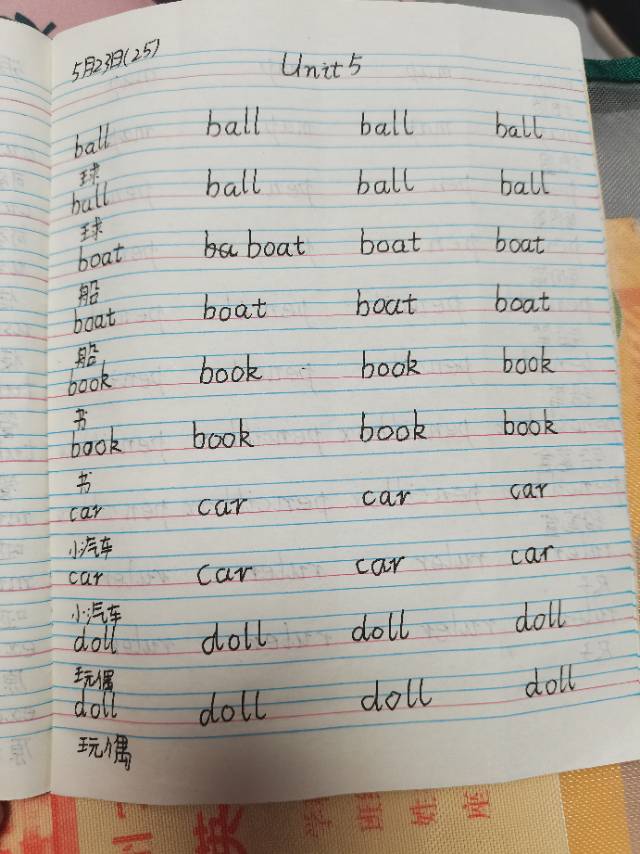 5月23日(25) Unit 5
ball ball ball ball
球
ball ball ball ball
球
boat ba boat boat boat
船
boat boat boat boat
船
book book book book
书
book book book book
书
car car car car
小汽车
car car car car
小汽车
doll doll doll doll
玩偶
doll doll doll doll
玩偶
英
学
班
姓
座